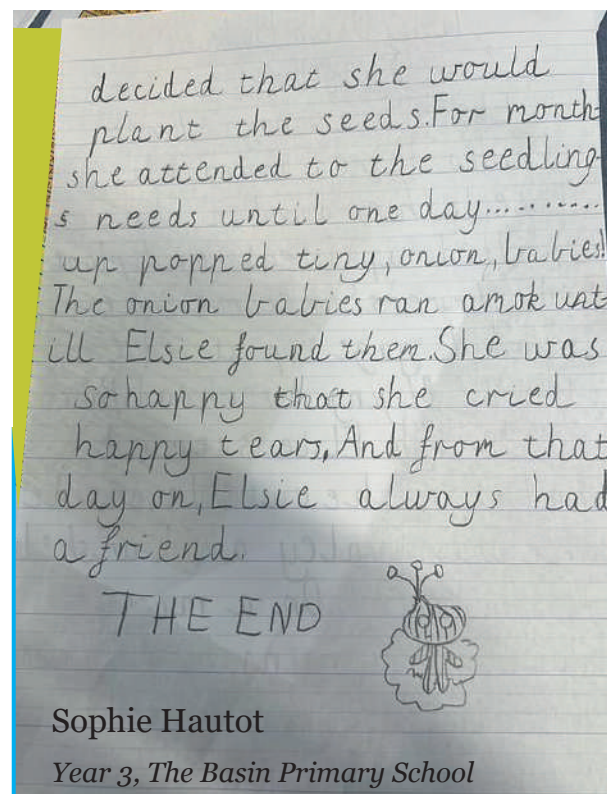 decided that she would
plant the seeds.For month
she attended to the seedling
s needs until one day...........
up popped tiny, onion, babies!
The onion babies ran amok unt
ill Elsie found them.She was
so happy that she cried
happy tears, And from that
day on, Elsie always had
a friend.
THE END
Sophie Hautot
Year 3, The Basin Primary School